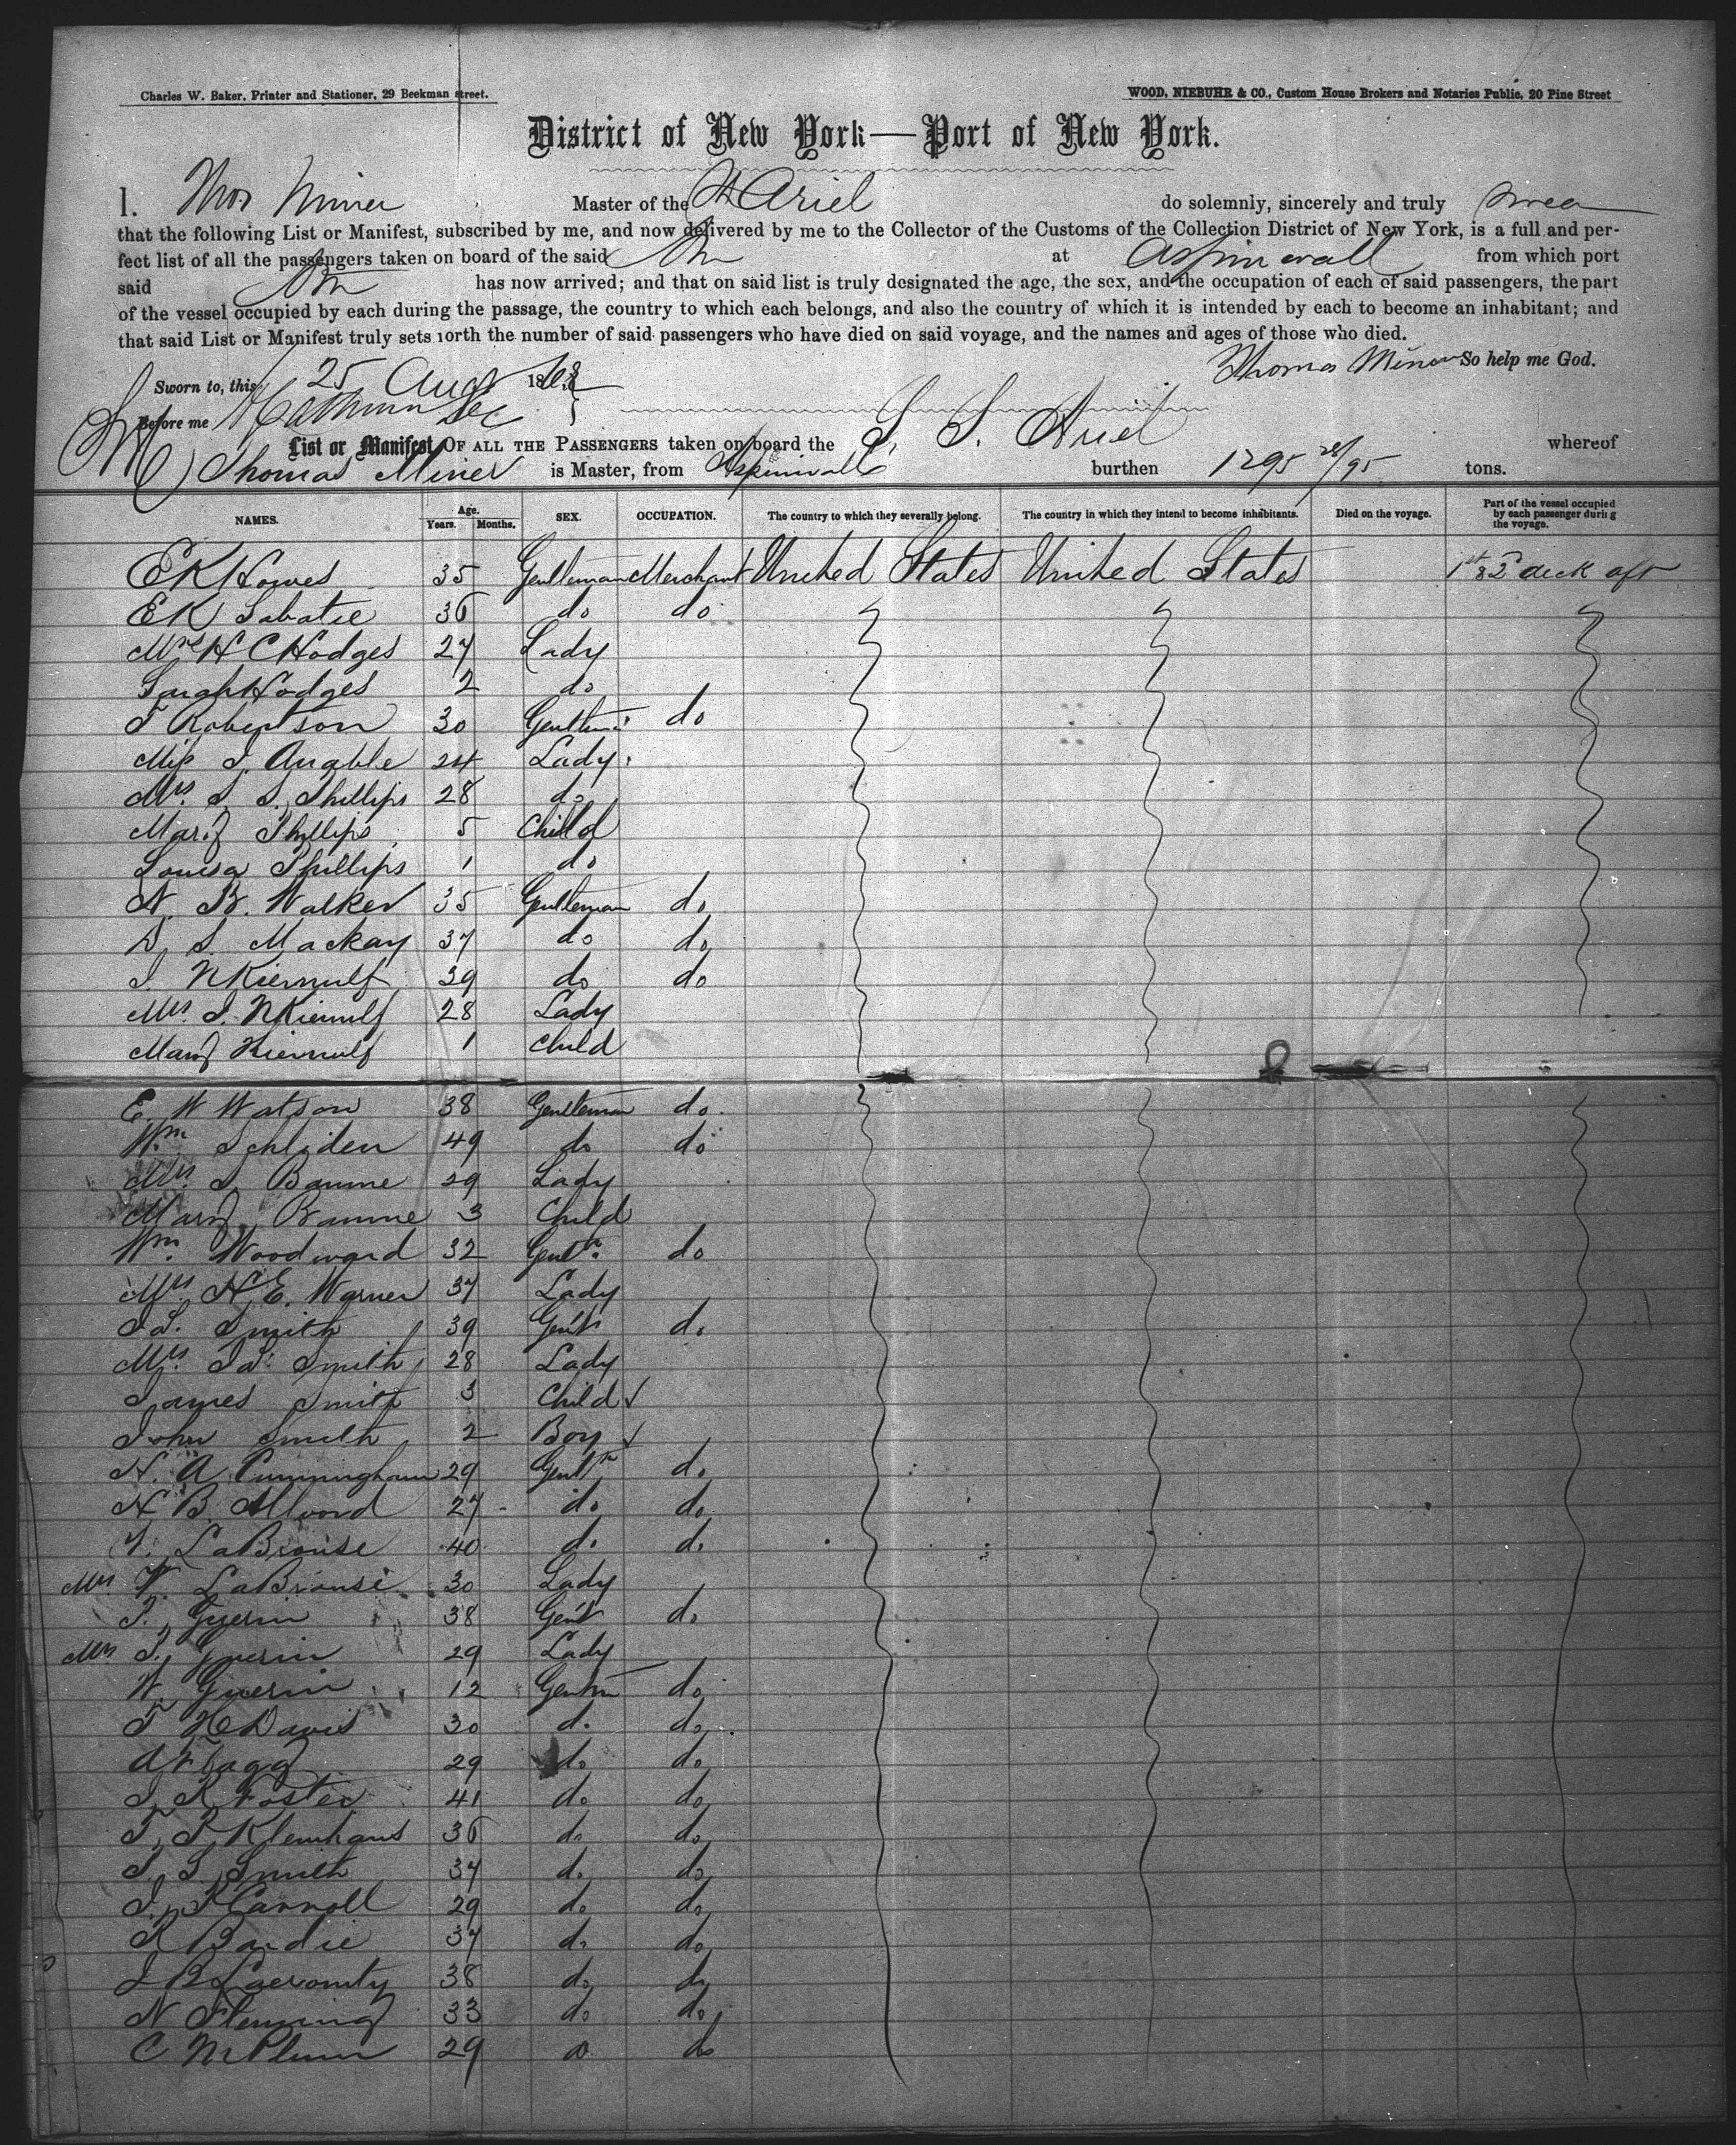 Charles W. Baker, Printer and Stationer, 29 Beekman street.
WOOD, NIEBUHR & CO., Custom House Brokers and Notaries Public, 20 Pine Street
District of New York—Port of New York.
I. Thos Miner Master of the Ariel do solemnly, sincerely and truly swear
that the following List or Manifest, subscribed by me, and now delivered by me to the Collector of the Customs of the Collection District of New York, is a full and per-
fect list of all the passengers taken on board of the said Str at Aspinwall from which port
said Str has now arrived; and that on said list is truly designated the age, the sex, and the occupation of each of said passengers, the part
of the vessel occupied by each during the passage, the country to which each belongs, and also the country of which it is intended by each to become an inhabitant; and
that said List or Manifest truly sets forth the number of said passengers who have died on said voyage, and the names and ages of those who died.
Thomas Miner So help me God.
Sworn to, this 25 Aug 186
Before me
List or Manifest OF ALL THE PASSENGERS taken on board the S. S. Ariel whereof
Thomas Miner is Master, from Aspinwall burthen 1295 28/95 tons.
NAMES. Age. Years. Months. SEX. OCCUPATION. The country to which they severally belong. The country in which they intend to become inhabitants. Died on the voyage. Part of the vessel occupied by each passenger during the voyage.
E K Howes 35 Gentleman Merchant United States United States 1st & 2d deck aft
E K Sabatie 36 do do
Mrs H C Hodges 27 Lady
Sarah Hodges 2 do
T Robertson 30 Gentlm do
Miss J. Anable 24 Lady
Mrs. S. S. Phillips 28 do
Mary Phillips 5 Child
Louisa Phillips 1 do
N. B. Walker 35 Gentleman do
D. S. Mackay 37 do do
J. N Kiernulf 39 do do
Mrs. J. N Kiernulf 28 Lady
Mary Kiernulf 1 Child
E. W Watson 38 Gentleman do
Wm. Schliden 49 do do
Mrs. J. Baume 29 Lady
Mary Baume 3 Child
Wm. Woodward 32 Gentn. do
Mrs H. E. Warner 37 Lady
J. S. Smith 39 Gent do
Mrs. J. S. Smith 28 Lady
James Smith 3 Child
John Smith 2 Boy
H. A. Cunningham 29 Gentn do
H B. Alvord 27 do do
V. LaBrouse 40 do do
Mrs V. LaBrouse 30 Lady
T. Guerin 38 Gent do
Mrs T. Guerin 29 Lady
W. Guerin 12 Gentm do
T H Davis 30 do do
A Flagg 29 do do
J. R Foster 41 do do
T. T. Klemhaus 36 do do
J. S. Smith 37 do do
J. K Carroll 29 do do
R Bardie 37 do do
J B 38 do do
N Fleming 33 do do
C M Plum 29 do do